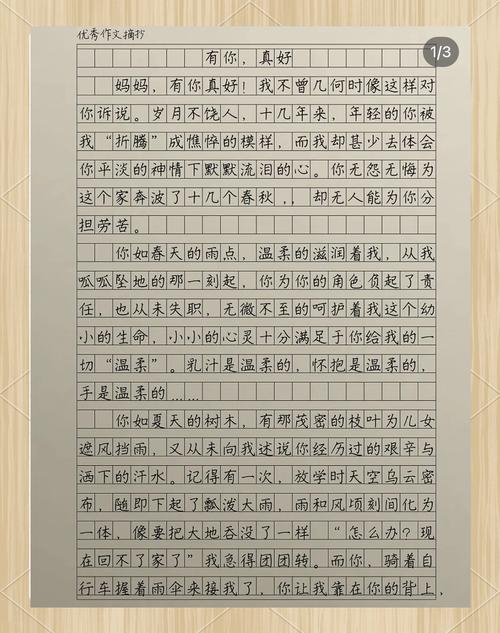 优秀作文摘抄
1/3
有你，真好
妈妈，有你真好！我不曾几何时像这样对
你诉说。岁月不饶人，十几年来，年轻的你被
我“折腾”成憔悴的模样，而我却甚少去体会
你平淡的神情下默默流泪的心。你无怨无悔为
这个家奔波了十几个春秋，，却无人能为你分
担劳苦。
你如春天的雨点，温柔的滋润着我，从我
呱呱坠地的那一刻起，你为你的角色负起了责
任，也从未失职，无微不至的呵护着我这个幼
小的生命，小小的心灵十分满足于你给我的一
切“温柔”。乳汁是温柔的，怀抱是温柔的，
手是温柔的……
你如夏天的树木，有那茂密的枝叶为儿女
遮风挡雨，又从未向我述说你经历过的艰辛与
洒下的汗水。记得有一次，放学时天空乌云密
布，随即下起了瓢泼大雨，雨和风顷刻间化为
一体，像要把大地吞没了一样“怎么办？现
在回不了家了”我急得团团转。而你，骑着自
行车握着雨伞来接我了，你让我靠在你的背上，